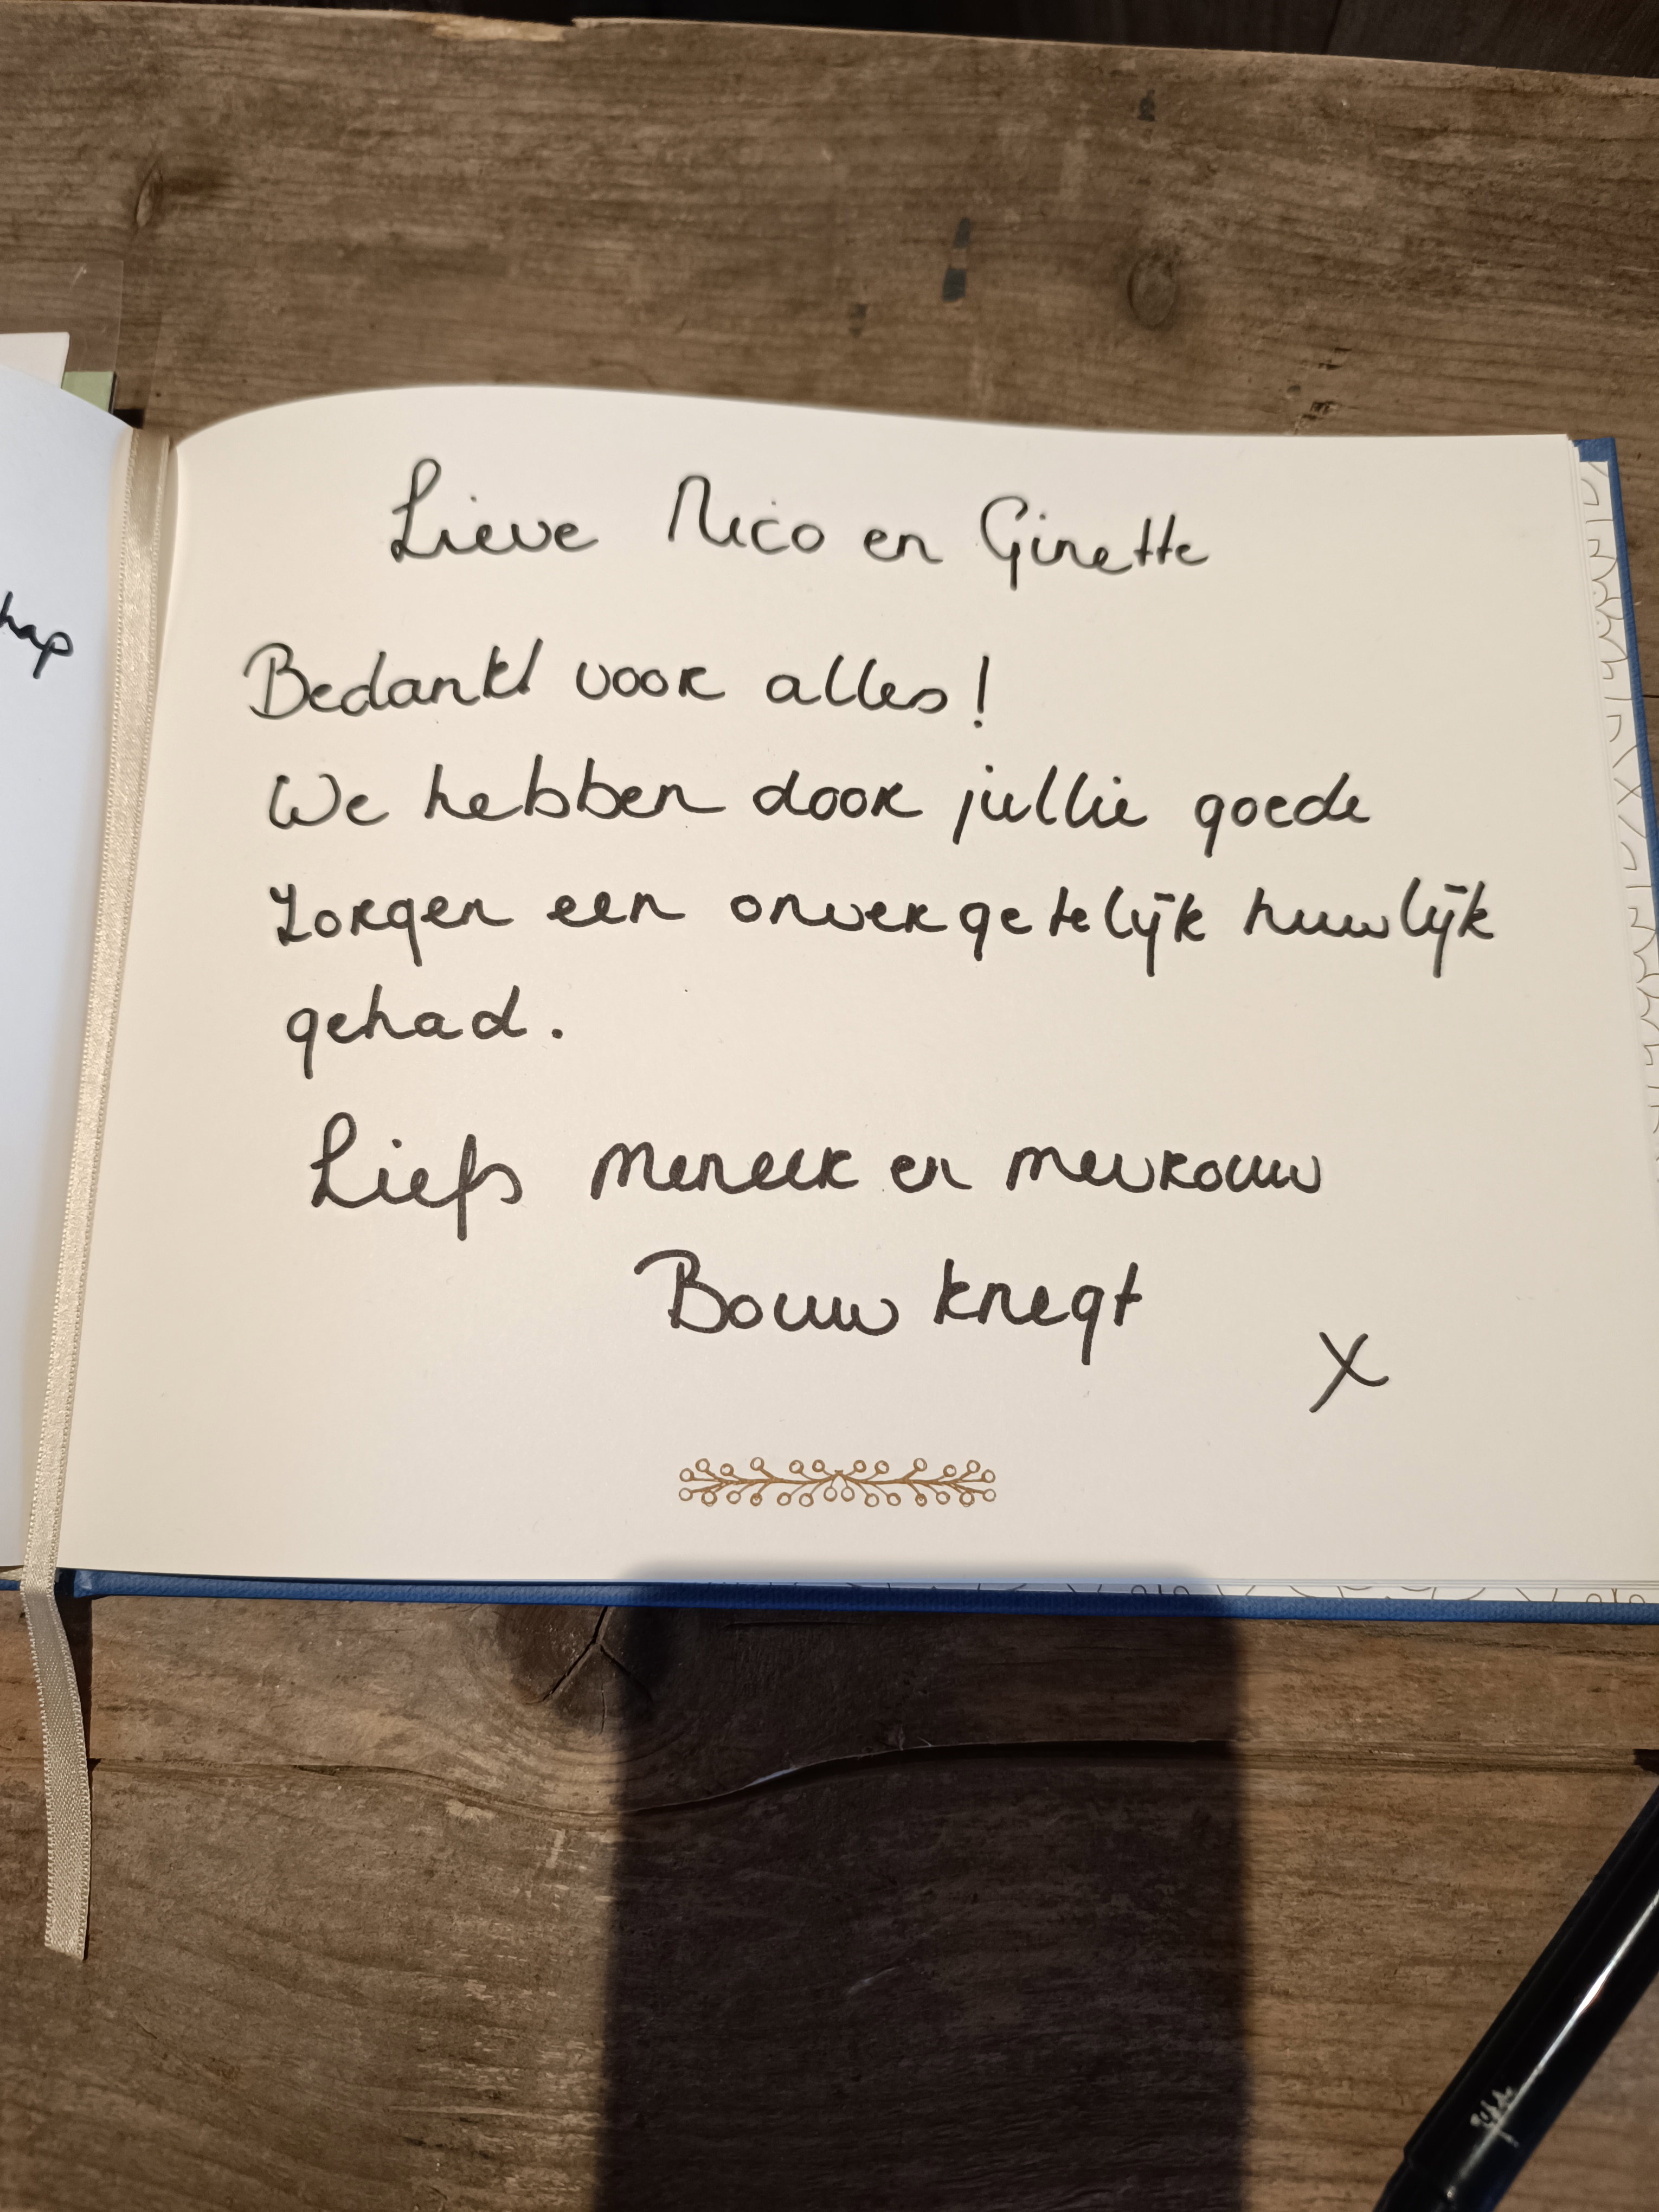 hap
Lieve Nico en Ginette
Bedankt voor alles!
We hebben door jullie goede
zorgen een onvergetelijk huwlijk
gehad.
Liefs meneer en mevrouw
Bouwknegt
X